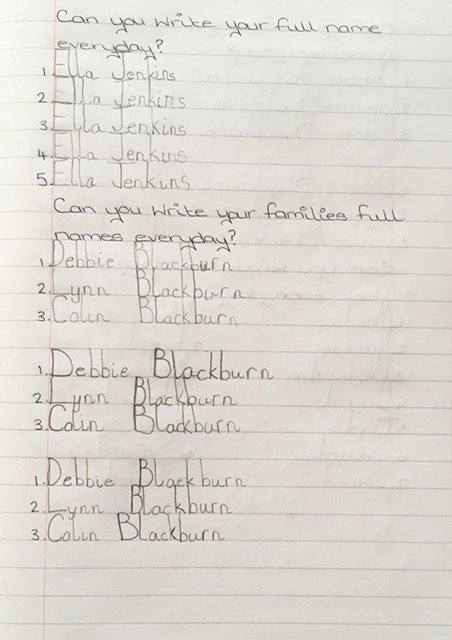 Can you write your full name
everyday?
1. Ella Jenkins
2. Ella Jenkins
3. Ella Jenkins
4. Ella Jenkins
5. Ella Jenkins
Can you write your families full
names everyday?
1. Debbie Blackburn
2. Lynn Blackburn
3. Colin Blackburn
1. Debbie Blackburn
2. Lynn Blackburn
3. Colin Blackburn
1. Debbie Blackburn
2. Lynn Blackburn
3. Colin Blackburn